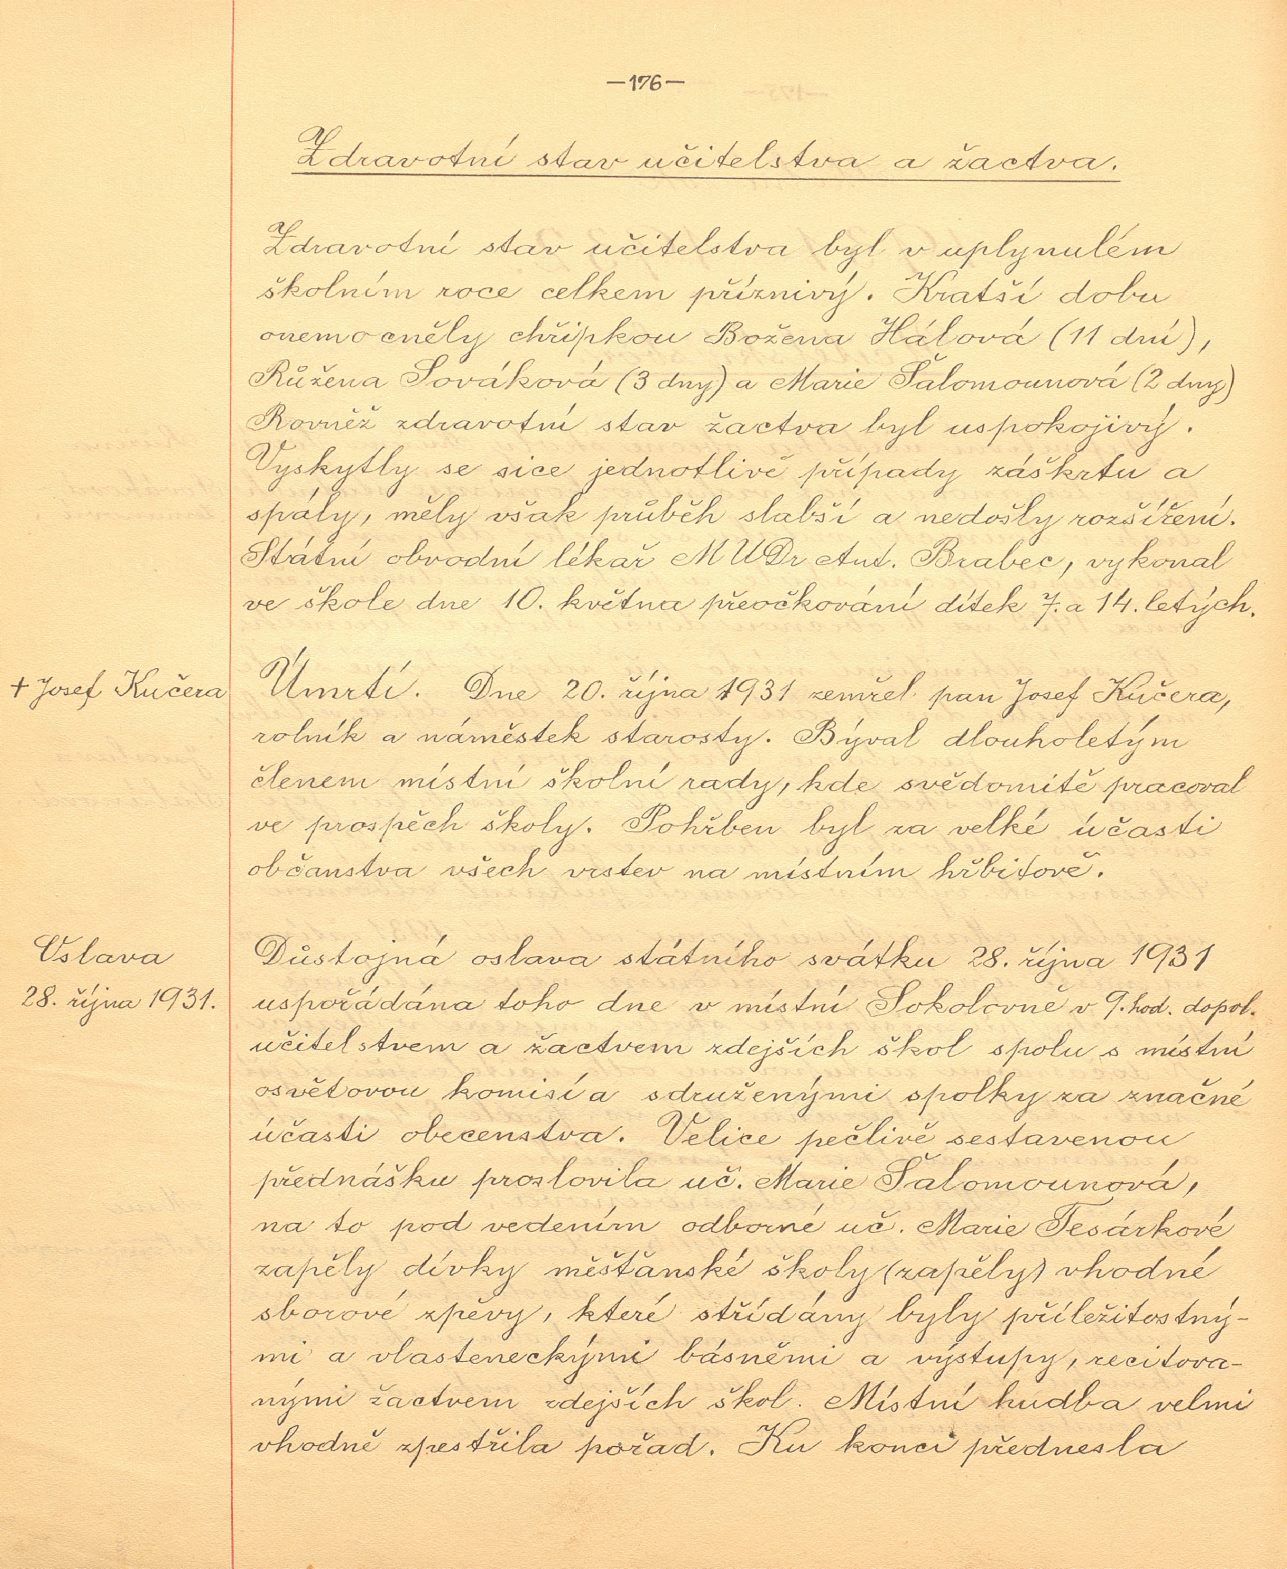 —176—
Zdravotní stav učitelstva a žactva.
Zdravotní stav učitelstva byl v uplynulém
školním roce celkem příznivý. Kratší dobu
onemocněly chřipkou Božena Hálová (11 dní),
Růžena Sováková (3 dny) a Marie Šalomounová (2 dny)
Rovněž zdravotní stav žactva byl uspokojivý.
Vyskytly se sice jednotlivé případy záškrtu a
spály, měly však průběh slabší a nedošly rozšíření.
Státní obvodní lékař MUDr Ant. Brabec, vykonal
ve škole dne 10. května přeočkování dítek 7. a 14. letých.
+ Josef Kučera
Úmrtí. Dne 20. října 1931 zemřel pan Josef Kučera,
rolník a náměstek starosty. Býval dlouholetým
členem místní školní rady, kde svědomitě pracoval
ve prospěch školy. Pohřben byl za velké účasti
občanstva všech vrstev na místním hřbitově.
Oslava
28. října 1931.
Důstojná oslava státního svátku 28. října 1931
uspořádána toho dne v místní Sokolovně v 9. hod. dopol.
učitelstvem a žactvem zdejších škol spolu s místní
osvětovou komisí a sdruženými spolky za značné
účasti obecenstva. Velice pečlivě sestavenou
přednášku proslovila uč. Marie Šalomounová,
na to pod vedením odborné uč. Marie Tesárkové
zapěly dívky měšťanské školy (zapěly) vhodné
sborové zpěvy, které střídány byly příležitostný-
mi a vlasteneckými básněmi a výstupy, recitova-
nými žactvem zdejších škol. Místní hudba velmi
vhodně zpestřila pořad. Ku konci přednesla